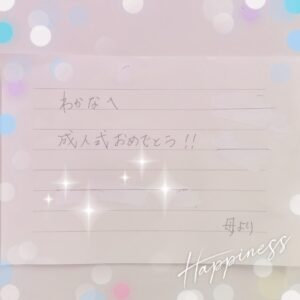 わかなへ
成人式おめでとう!!
母より
Happiness